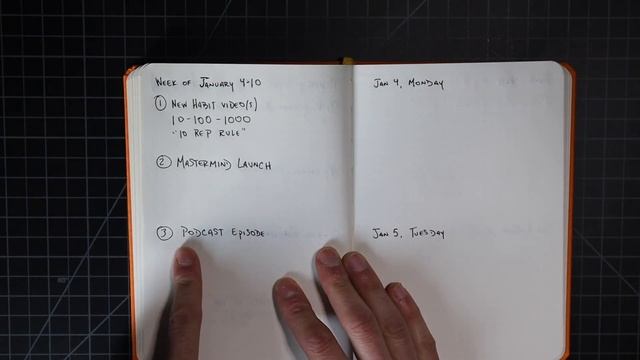 Week of January 4-10
① New Habit Video(s)
10-100-1000
"10 Rep Rule"
② Mastermind Launch
③ Podcast Episode
Jan 4, Monday
Jan 5, Tuesday